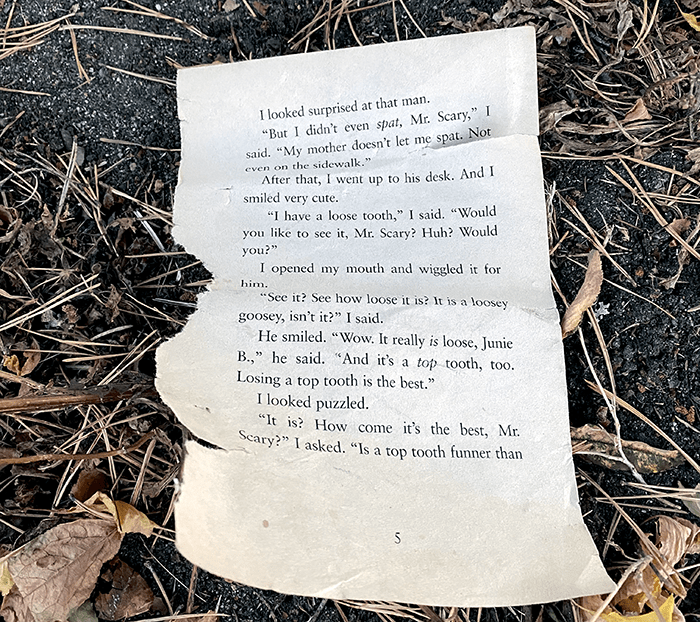 I looked surprised at that man.
"But I didn't even spat, Mr. Scary," I
said. "My mother doesn't let me spat. Not
even on the sidewalk."
After that, I went up to his desk. And I
smiled very cute.
"I have a loose tooth," I said. "Would
you like to see it, Mr. Scary? Huh? Would
you?"
I opened my mouth and wiggled it for
him.
"See it? See how loose it is? It is a loosey
goosey, isn't it?" I said.
He smiled. "Wow. It really is loose, Junie
B.," he said. "And it's a top tooth, too.
Losing a top tooth is the best."
I looked puzzled.
"It is? How come it's the best, Mr.
Scary?" I asked. "Is a top tooth funner than
5